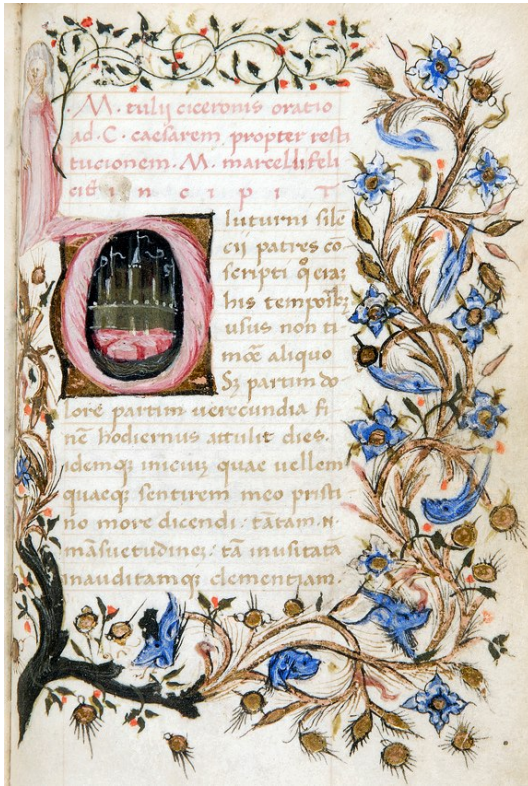 .M. tulij ciceronis oratio
ad .C. caesarem propter resti
tucionem .M. marcelli feli
cit̄ i n c i p i T
D luturni sile
cii patres co
scripti qͦ eraꝫ
his tempoꝝibꝫ
usus non ti-
moē aliquo
Sꝫ partim do-
lorē partim uerecundia fi-
nē hodiernus attulit dies.
idemqꝫ inicium quae uellem
quaeqꝫ sentirem meo pristi-
no more dicendi. tātam .N.
māsuetudineꝫ. tā inusitatā
inauditamqꝫ clementiam.